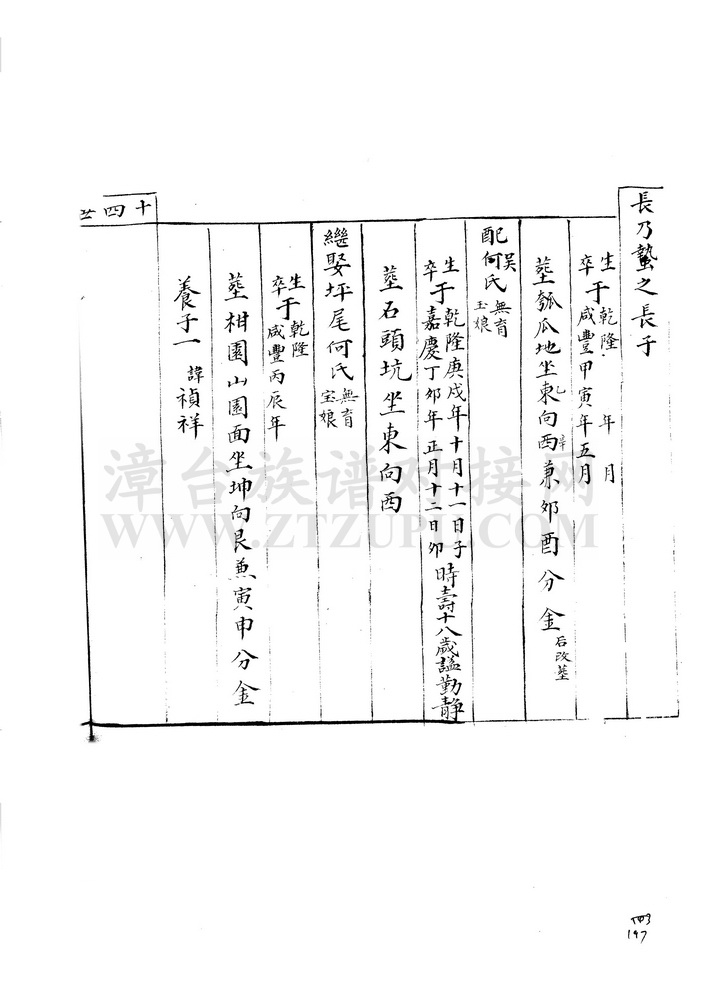 長乃蟄之長子
生于乾隆 年 月
卒于咸豐甲寅年五月
塟瓠瓜地坐東乙向西辛兼卯酉分金 后改塟
配吴何氏 無育 玉娘
生于乾隆庚戌年十月十一日子
卒于嘉慶丁卯年正月十二日卯時壽十八歲謚勤靜
塟石頭坑坐東向西
繼娶坪尾何氏 無育 宝娘
生于乾隆
卒于咸豐丙辰年
塟柑園山園面坐坤向艮兼寅申分金
養子一 諱禎祥
十四世
漳台族谱对接网
WWW.ZTZUPU.COM
197